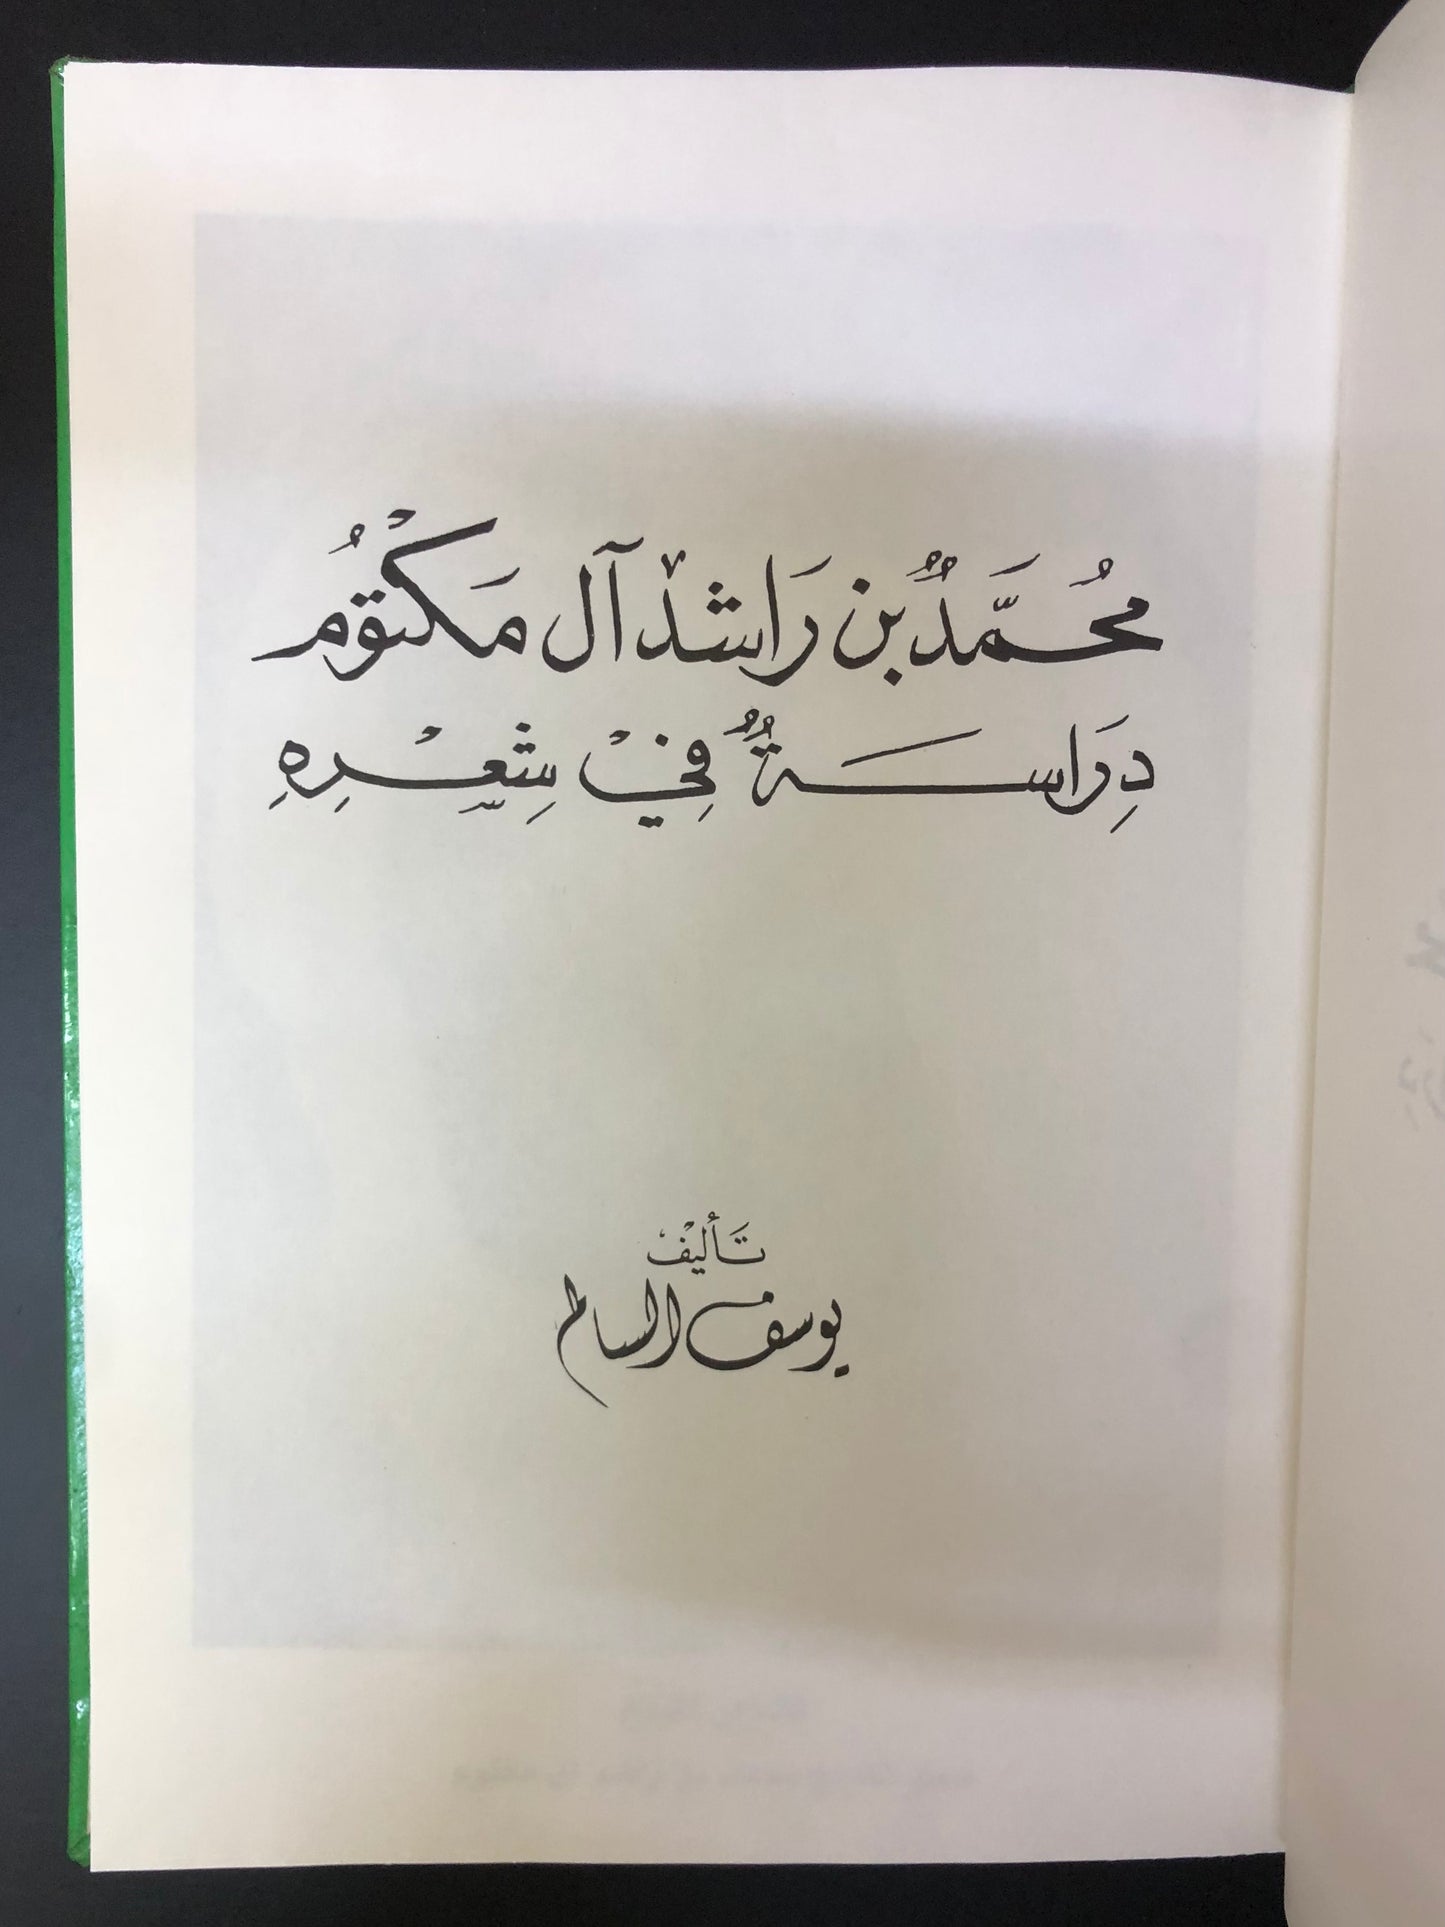 مُحَمَّدُ بْن رَاشِدْ آل مَكْتُوْمُ
دِرَاسَةٌ فِيْ شِعْرِهِ
تَأليفْ
يوسف السالم